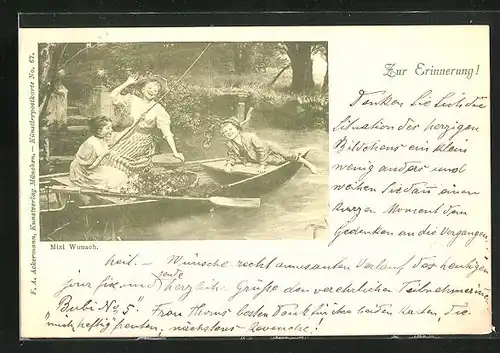 F. A. Ackermann, Kunstverlag München. — Künstlerpostkarte No. 67.
Zur Erinnerung!
Mizi Wunsch.
Denken Sie sich die
Situation der herzigen
Bildchens ein klein
wenig anders und
weihen Sie dann einen
kurzen Moment dem
Gedenken an die Vergangen-
heit. — Wünsche recht amusanten Verlauf des heutigen
für Sie und sende herzliche Grüße den verehrlichen Teilnehmern.
"Bubi No. 5". Frau Thoms besten Dank für ihre beiden Karten, die
mich heftig freuten, nächstens Revanche!